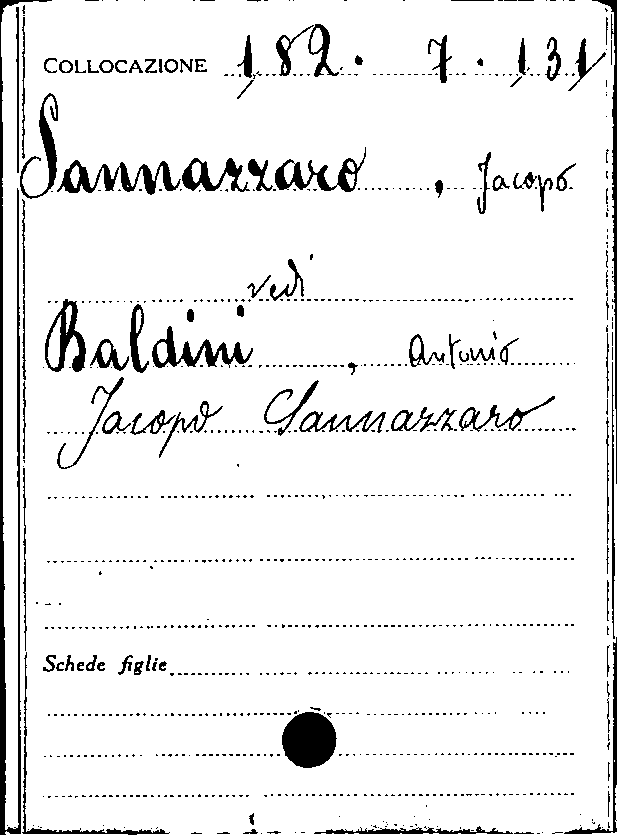 COLLOCAZIONE 182. 7. 131
Sannazzaro, Jacopo
vedi
Baldini, Antonio
Jacopo Sannazzaro
Schede figlie